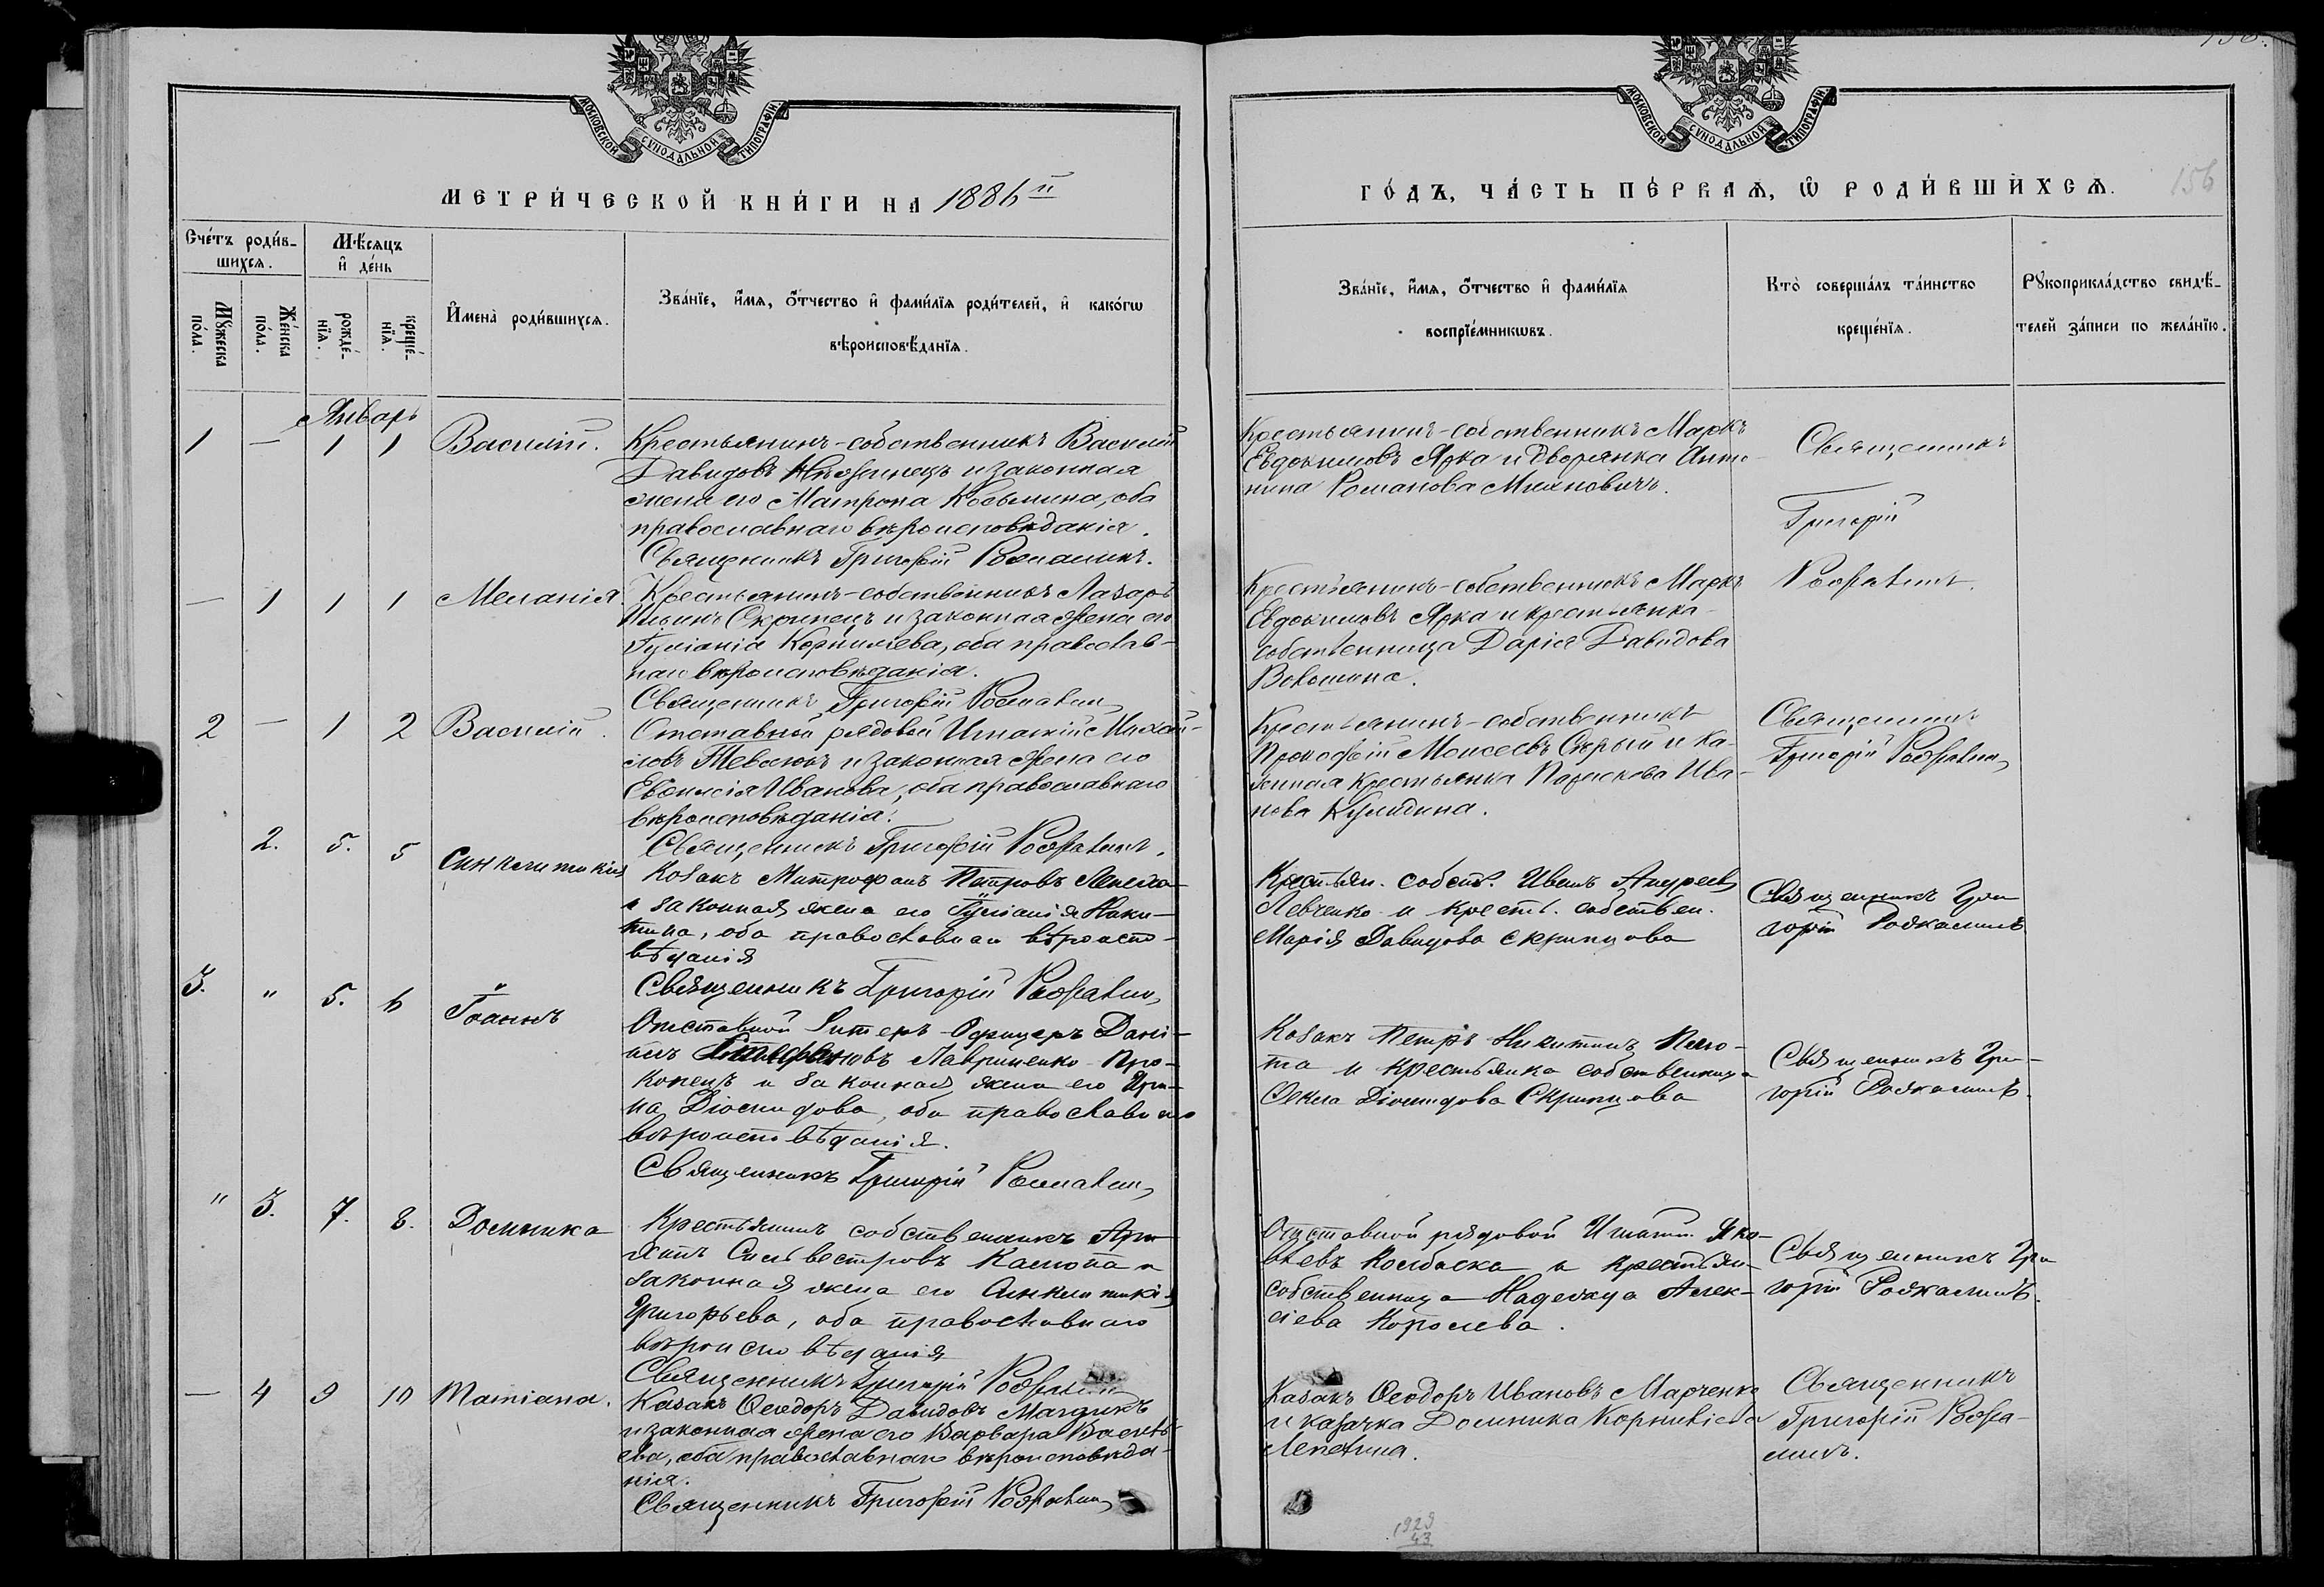 МОСКОВСКОЙ СУНОДАЛЬНОЙ ТИПОГРАФІИ
МЕТРИ́ЧЕСКОЙ КНИ́ГИ НА 1886й
Сче́тъ роди́в-
шихсѧ.
Мѣ́сѧцъ
и҆ де́нь
Мꙋ́жеска
по́ла.
Же́нска
по́ла.
рожде́-
нїѧ.
креще́-
нїѧ.
И҆мена̀ роди́вшихсѧ.
Зва́нїе, и҆́мѧ, ѻ҆́тчество и҆ фами́лїѧ роди́телей, и҆ како́гѡ
вѣроисповѣ́данїѧ.
Январь
1 — 1 1 Василій.
Крестьянинъ-собственникъ Василій
Давидовъ и законная
жена его Матрона Косьмина, оба
православнаго вѣроисповѣданія.
Священникъ Григорій
— 1 1 1 Меланія.
Крестьянинъ-собственникъ Лазарь
Ильинъ Скрипецъ и законная жена его
Іуліанія Корниліева, оба православ-
наго вѣроисповѣданія.
Священникъ Григорій
2 — 1 2 Василій.
Отставной рядовой Игнатій Михай-
ловъ и законная жена его
Евфимія Иванова, оба православнаго
вѣроисповѣданія.
Священникъ Григорій
2. 5. 5 Синклитикія
Козакъ Митрофанъ Петровъ
и законная жена его Іуліанія Ники-
тина, оба православнаго вѣроиспо-
вѣданія
Священникъ Григорій
3. " 5. 6 Іоаннъ
Отставной Унтеръ-Офицеръ Дані-
илъ Стефановъ Лавриненко-Про-
копецъ и законная жена его Ири-
на Діомидова, оба православнаго
вѣроисповѣданія.
Священникъ Григорій
" 3. 7. 8. Домника
Крестьянинъ собственникъ
Сильвестровъ и
законная жена его Синклитикія
Григорьева, оба православнаго
вѣроисповѣданія
Священникъ Григорій
— 4 9 10 Татіана.
Казакъ Ѳеодоръ Давидовъ
и законная жена его Варвара Василь-
ева, оба православнаго вѣроисповѣда-
нія.
Священникъ Григорій
МОСКОВСКОЙ СУНОДАЛЬНОЙ ТИПОГРАФІИ
ГО́ДЪ, ЧА́СТЬ ПЕ́РВАѦ, Ѽ РОДИ́ВШИХСѦ. 156
Зва́нїе, и҆́мѧ, ѻ҆́тчество и҆ фами́лїѧ
воспрїе́мникѡвъ.
Кто̀ соверша́лъ та́инство
креще́нїѧ.
Рꙋкоприкла́дство свидѣ́-
телей за́писи по жела́нїю.
Крестьянинъ-собственникъ Маркъ
Евдокимовъ Ярка и Дворянка Анто-
нина Романова
Священникъ
Григорій
Крестьянинъ-собственникъ Маркъ
Евдокимовъ Ярка и крестьянка-
собственница Дарія Давидова
Крестьянинъ-собственникъ
Прокофій Моисеевъ Сѣрый и ка-
зенная крестьянка Параскева Ива-
нова
Священникъ
Григорій
Крестьян. собств. Иванъ Андреевъ
Левченко и крест. собствен.
Марія Давидова Скрипцова
Священникъ Гри
горій
Козакъ Петръ Никитинъ
и крестьянка собственница
Ѳекла Діомидова Скрипцова
Священникъ Гри-
горій
Отставной рядовой Игнатій Яко-
влевъ Колбаска и крестьян-
собственница Надежда Алек-
сіева Королева.
Священникъ Гри
горій
Казакъ Ѳеодоръ Ивановъ Марченко
и казачка Домника Корниліева
Священникъ
Григорій
1929
43